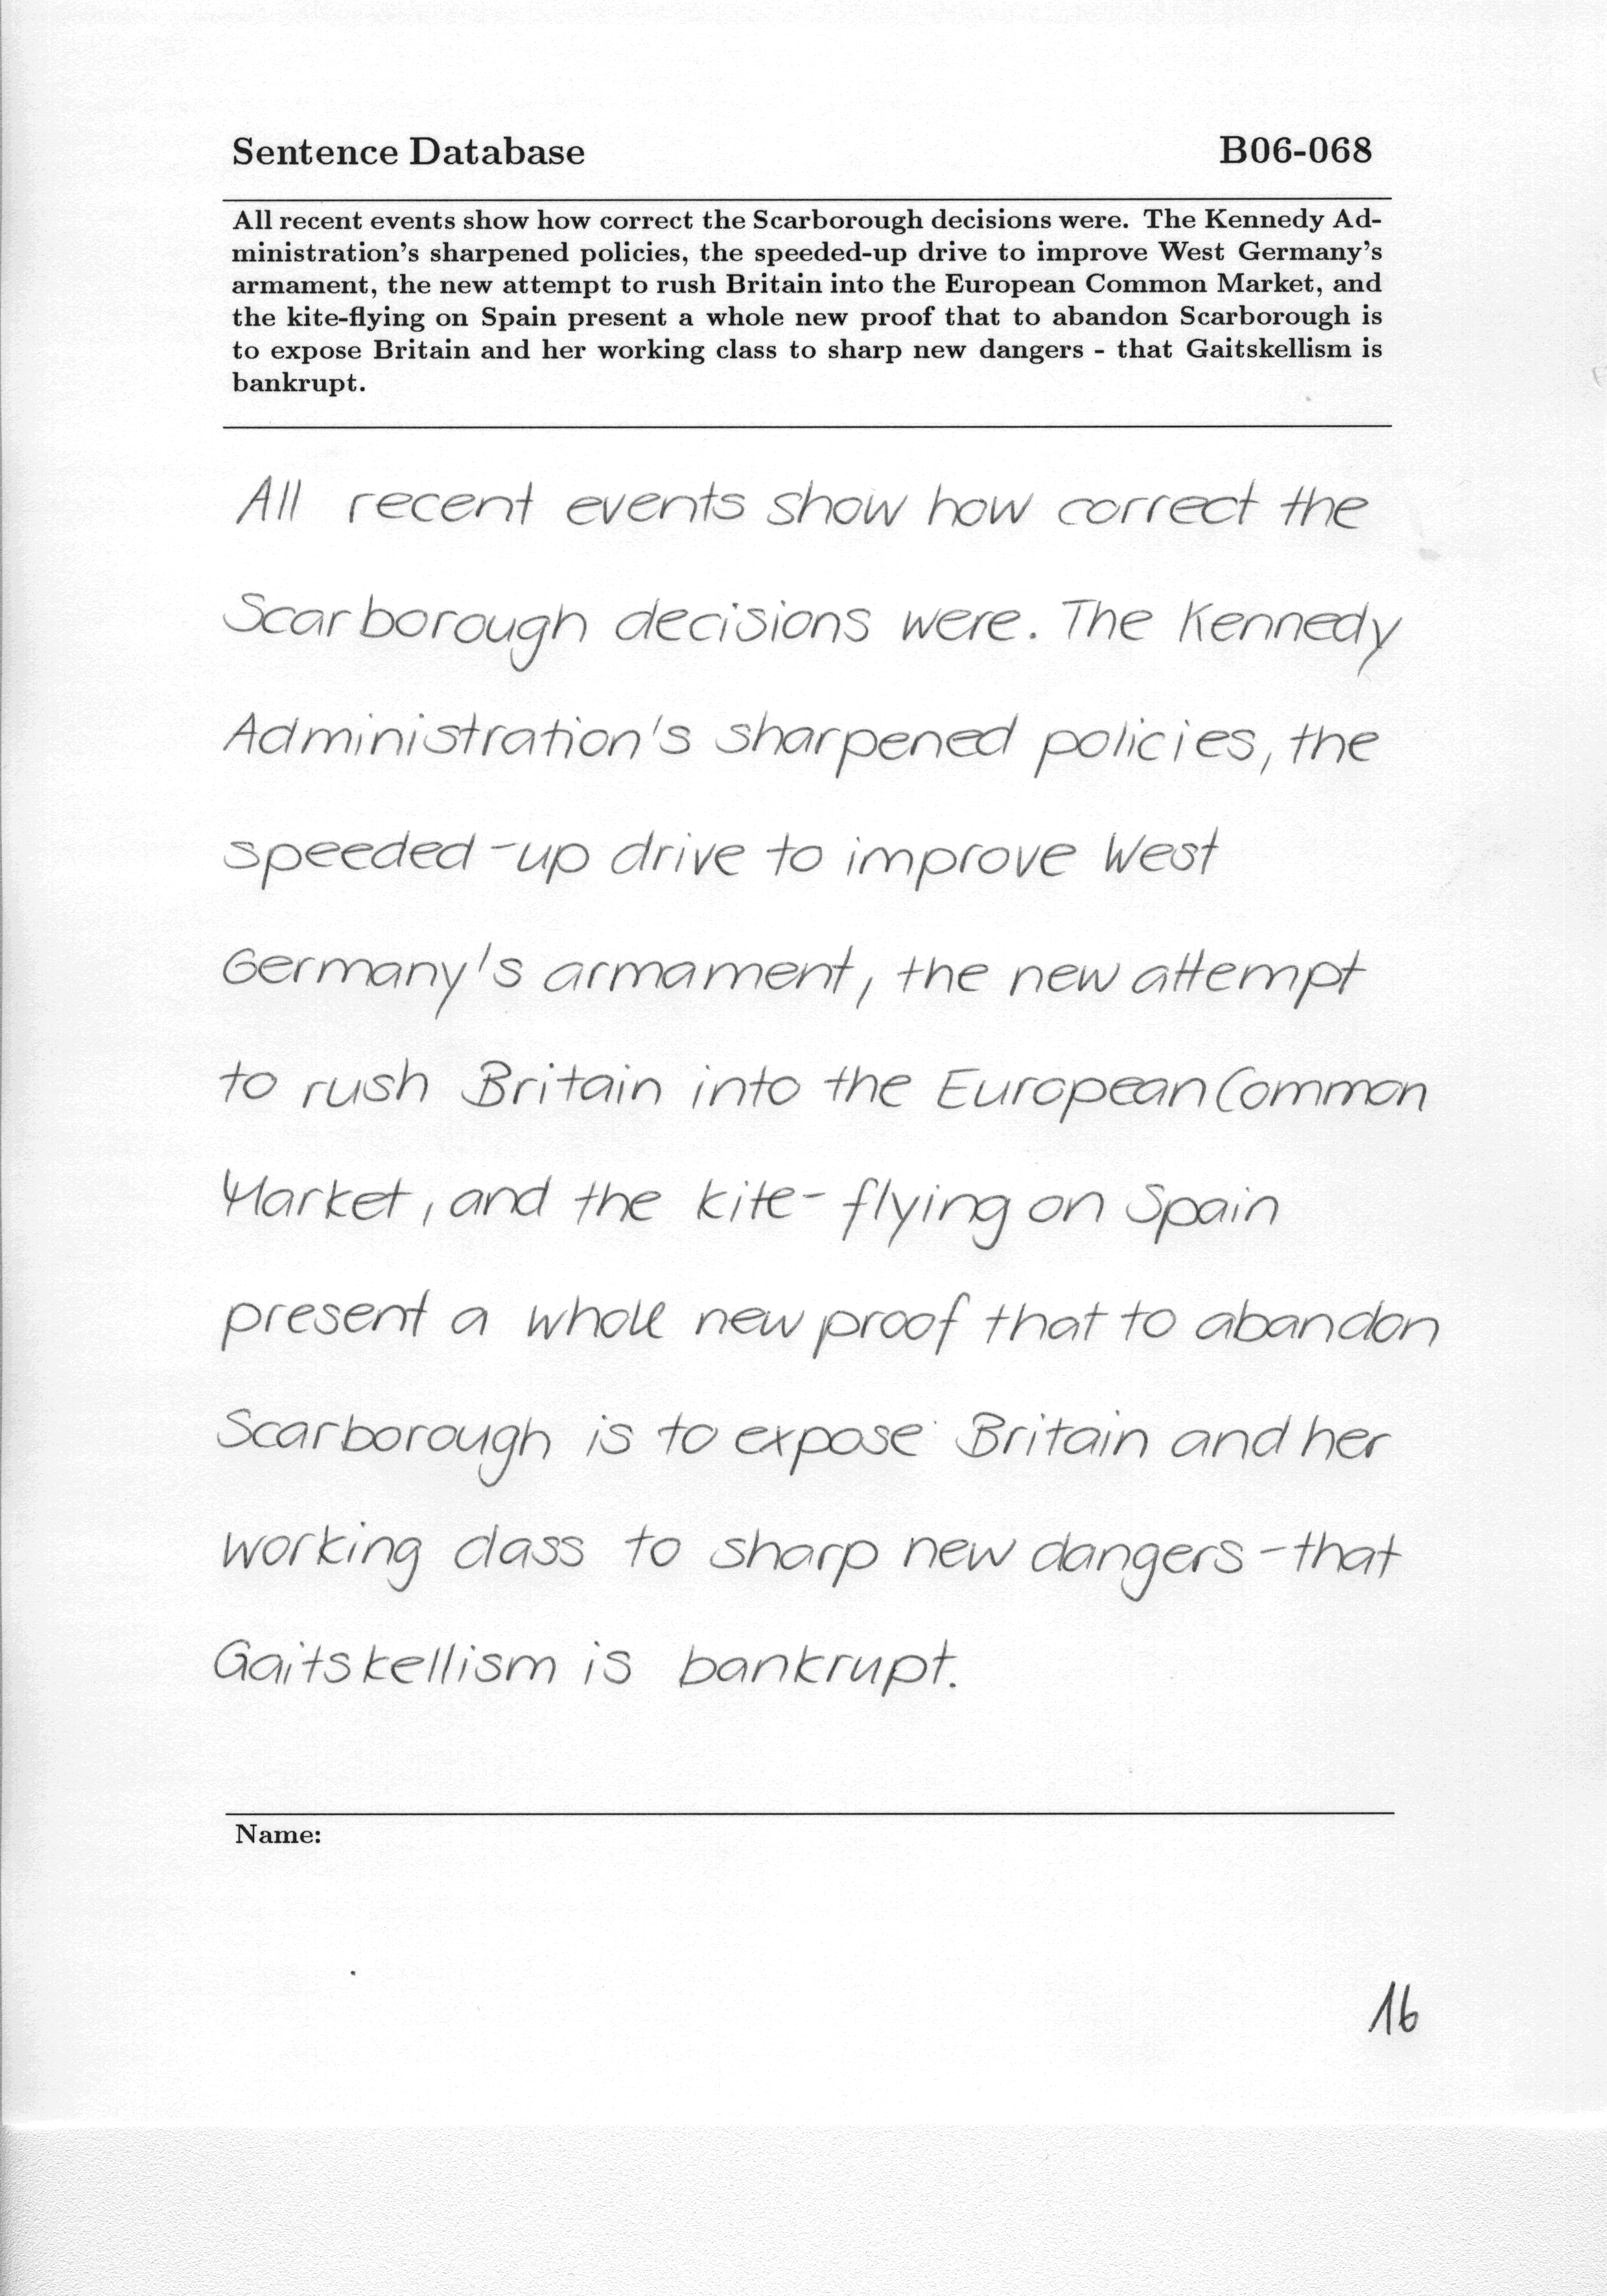 Sentence Database B06-068
All recent events show how correct the Scarborough decisions were. The Kennedy Ad-
ministration's sharpened policies, the speeded-up drive to improve West Germany's
armament, the new attempt to rush Britain into the European Common Market, and
the kite-flying on Spain present a whole new proof that to abandon Scarborough is
to expose Britain and her working class to sharp new dangers - that Gaitskellism is
bankrupt.
All recent events show how correct the
Scarborough decisions were. The Kennedy
Administration's sharpened policies, the
speeded-up drive to improve West
Germany's armament, the new attempt
to rush Britain into the European Common
Market, and the kite-flying on Spain
present a whole new proof that to abandon
Scarborough is to expose Britain and her
working class to sharp new dangers - that
Gaitskellism is bankrupt.
Name:
16